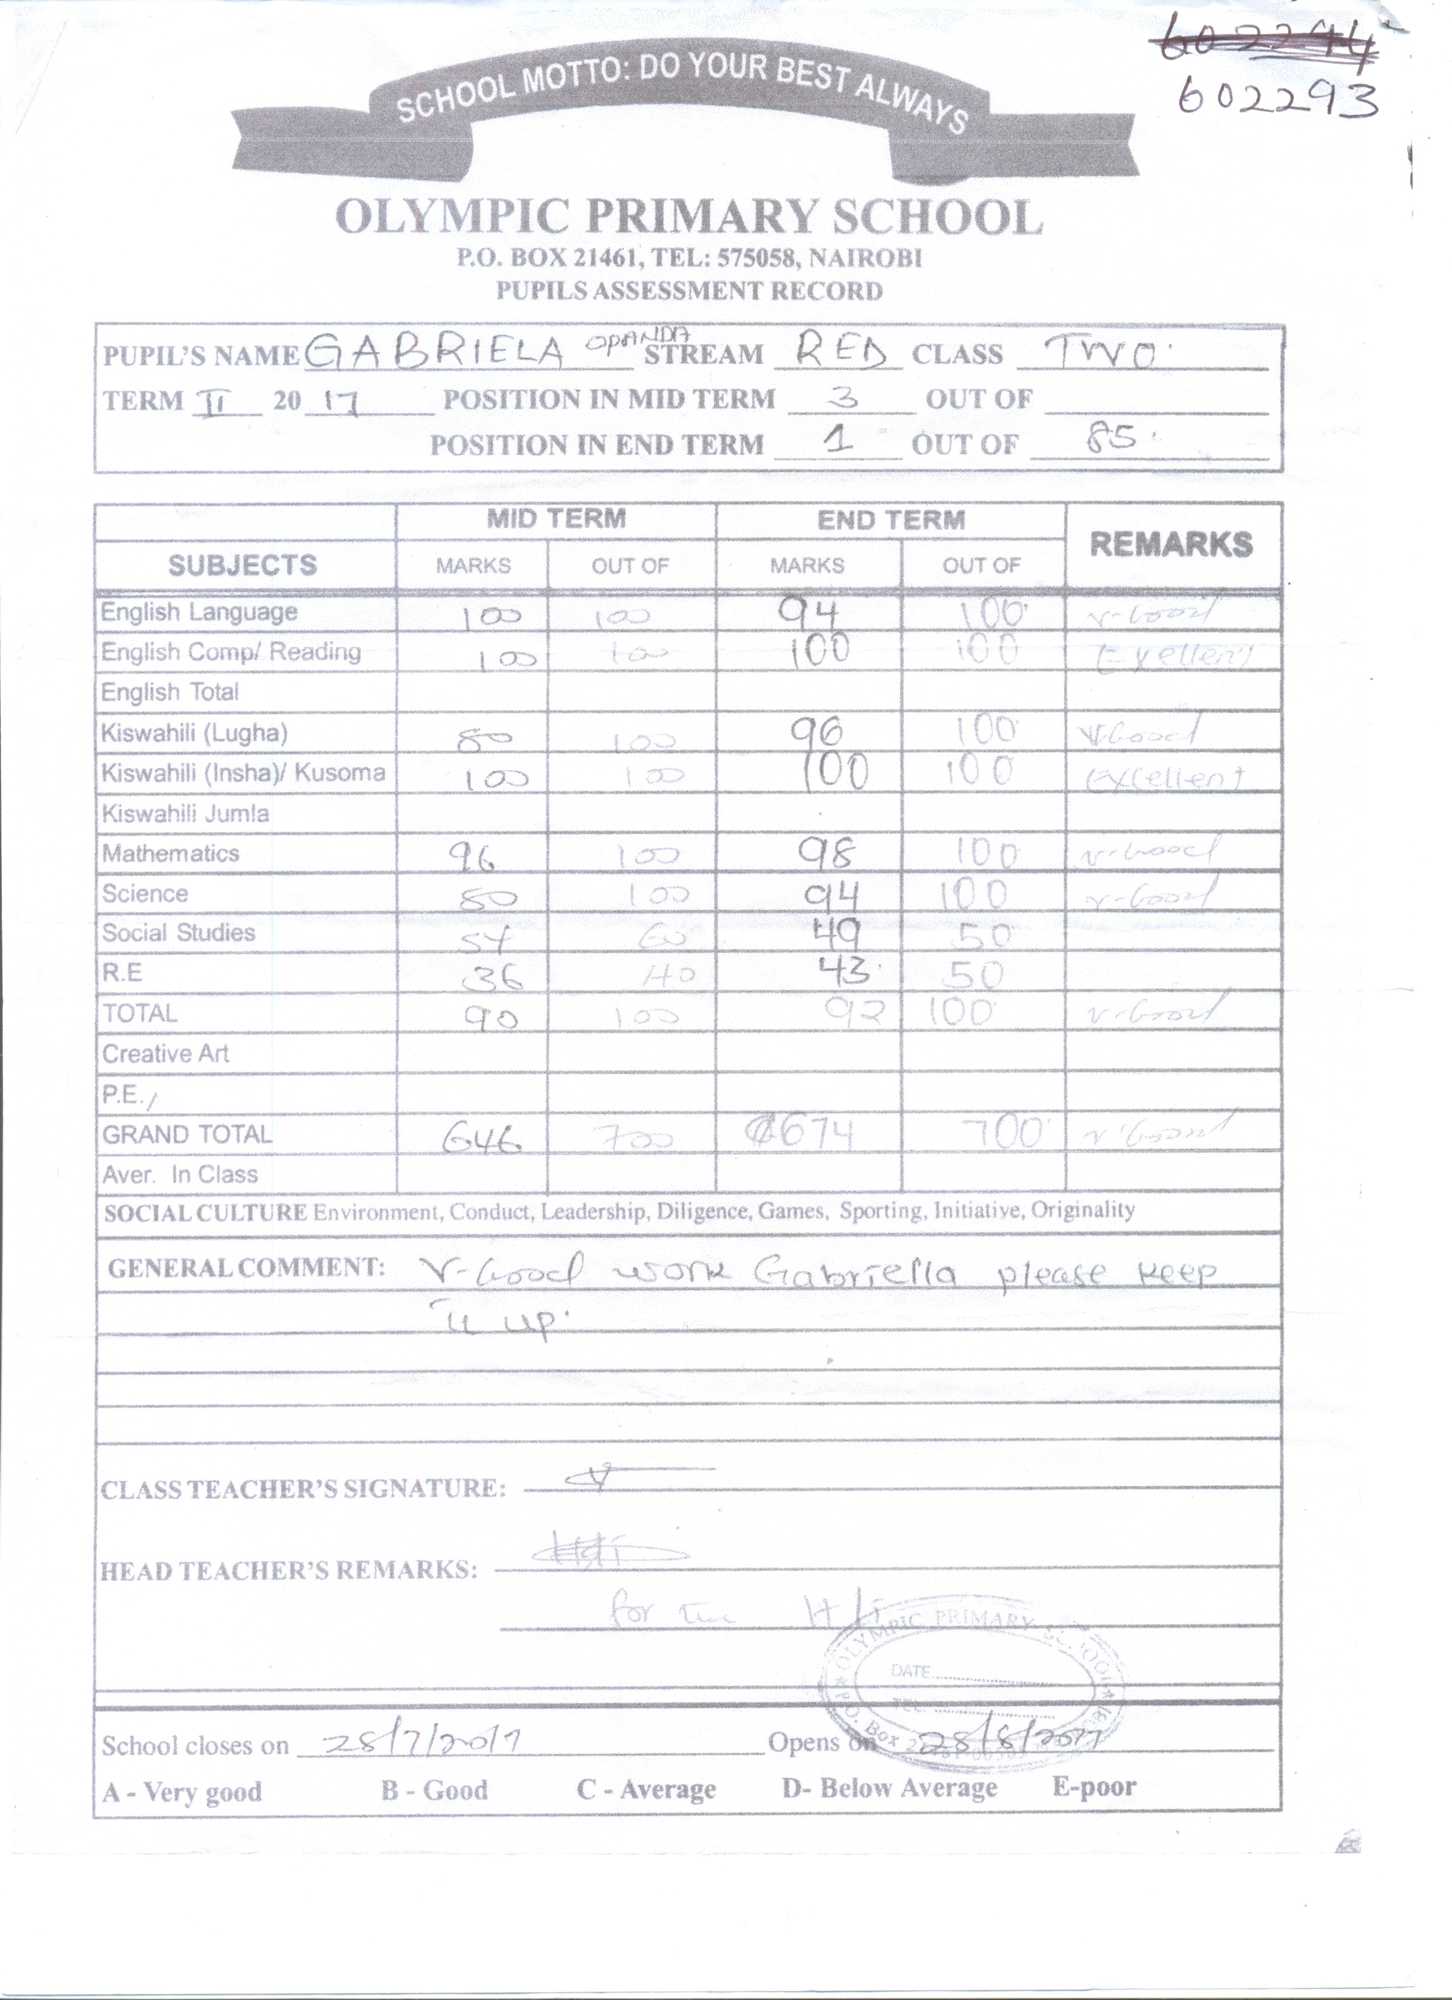 602294
602293
SCHOOL MOTTO: DO YOUR BEST ALWAYS
OLYMPIC PRIMARY SCHOOL
P.O. BOX 21461, TEL: 575058, NAIROBI
PUPILS ASSESSMENT RECORD
PUPIL'S NAME GABRIELA OPANDA STREAM RED CLASS TWO.
TERM II 20 17 POSITION IN MID TERM 3 OUT OF
POSITION IN END TERM 1 OUT OF 85.
MID TERM END TERM REMARKS
SUBJECTS MARKS OUT OF MARKS OUT OF
English Language 100 100 94 100 v-Good
English Comp/ Reading 100 100 100 100 Exellent
English Total
Kiswahili (Lugha) 80 100 96 100 V-Good
Kiswahili (Insha)/ Kusoma 100 100 100 100 Excellent
Kiswahili Jumla
Mathematics 96 100 98 100 v-Good
Science 80 100 94 100 v-Good
Social Studies 54 60 49 50
R.E 36 40 43 50
TOTAL 90 100 92 100 v-Good
Creative Art
P.E.
GRAND TOTAL 646 700 674 700 v-Good
Aver. In Class
SOCIAL CULTURE Environment, Conduct, Leadership, Diligence, Games, Sporting, Initiative, Originality
GENERAL COMMENT: V-Good work Gabriella please keep
it up.
CLASS TEACHER'S SIGNATURE:
HEAD TEACHER'S REMARKS:
for the H/T
OLYMPIC PRIMARY SCHOOL
DATE
TEL.
P.O. Box
School closes on 28/7/2017 Opens on 28/8/2017
A - Very good B - Good C - Average D- Below Average E-poor